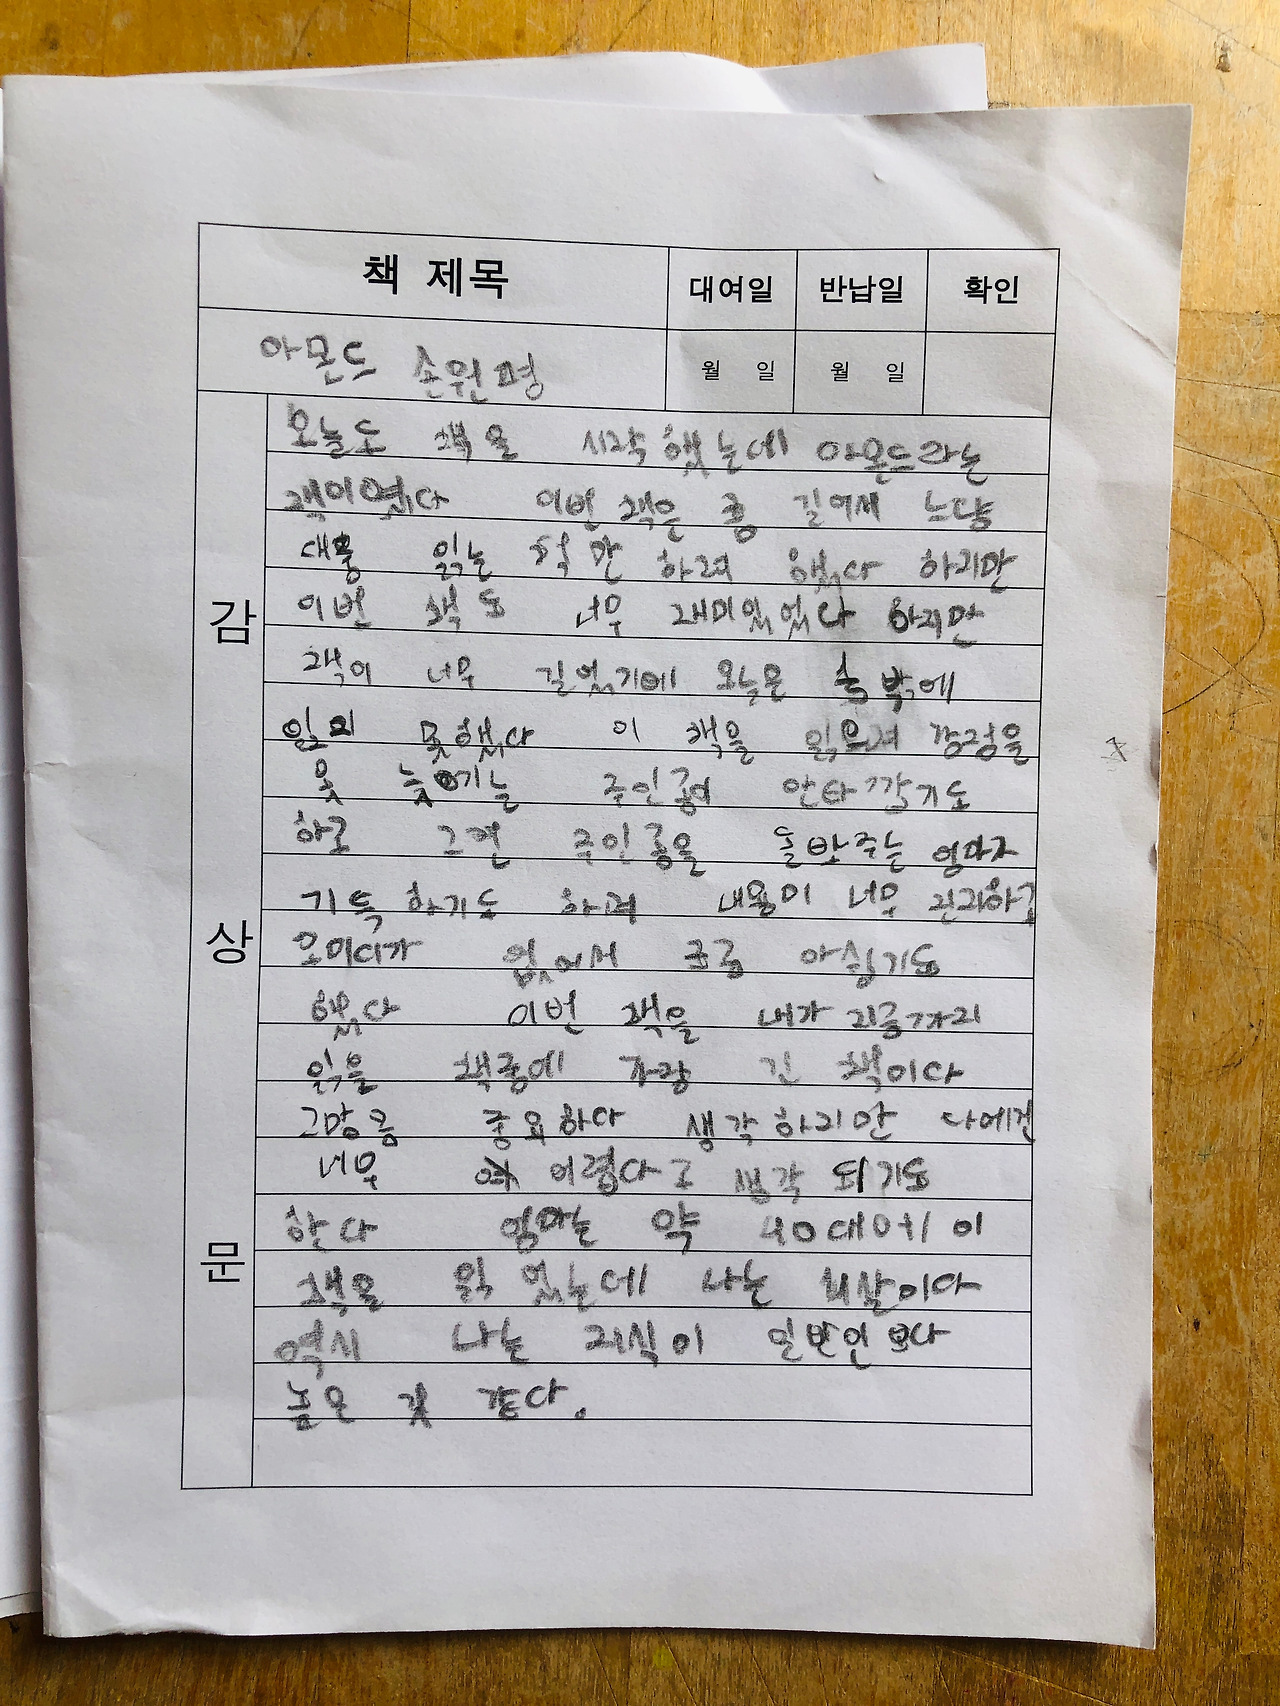 책 제목 대여일 반납일 확인
아몬드 손원평 월 일 월 일
감상문
오늘도 책을 시작했는데 아몬드라는
책이였다 이번 책은 좀 길어서 느냥
대충 읽는 척만 하려 했다 하지만
이번 책도 너무 재미있었다 하지만
책이 너무 길었기에 오늘은 밖에
읽지 못했다 이 책을 읽으려 감정을
못 늦기는 주인공이 안타깝기도
하고 그런 주인공을 돌반주는 엄마가
기특하기도 하려 내용이 너무 진지하고
코미디가 없어서 조금 아쉽기도
했다 이번 책을 내가 지금까지
읽을 책중에 가장 긴 책이다
고망좀 중요하다 생각하지만 나에겐
너무 어렵다고 생각 되기도
한다 엄마는 약 40대에 이
책을 읽었는데 나는 살이다
역시 나는 지식이 일반인보다
높은 것 같다.